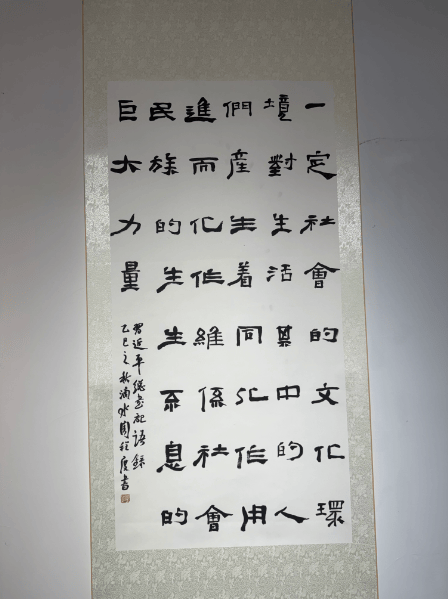 一定社會的文化環
境對生活其中的人
們產生着同化作用
進而化作維係社會
民族的生生不息的
巨大力量
習近平總書記語錄
乙巳之秋 水周 書